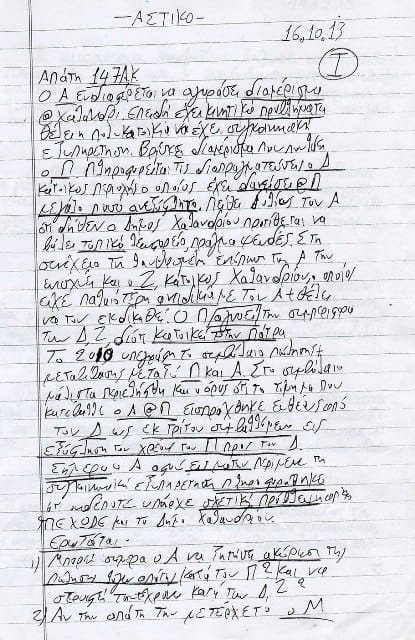 -ΑΣΤΙΚΟ-
16.10.13
Ι
Απάτη 147ΑΚ
Ο Α ενδιαφέρεται να αγοράσει διαμέρισμα
@ Χαλάνδρι. Επειδή έχει κινητικά προβλήματα
θέλει η πολυκατοικία να έχει συγκοινωνιακή
εξυπηρέτηση. Βρίσκει διαμέρισμα που πουλάει
ο Π. Πληροφορείται τις διαπραγματεύσεις ο Δ
κάτοικος περιοχής ο οποίος έχει δανείσει @ Π
μεγάλο ποσό ανεξόφλητο. Πείθει δολίως τον Α
ότι δήθεν ο Δήμος Χαλανδρίου προτίθεται να
βάλει τοπικό λεωφορείο, πράγμα ψευδές. Στη
συνέχεια τη πεποίθηση του Α την
ενισχύει και ο Ζ, κάτοικος Χαλανδρίου, ο οποίος
είχε παλαιότερη αντιδικία με τον Α + θέλει
να τον εκδικηθεί. Ο Π αγνοεί την συμπεριφορά
των Δ, Ζ διότι κατοικεί στην Πάτρα
Το 2010 υπογράφη το συμβόλαιο πώλησης +
μεταβίβασης μεταξύ Π και Α. Στο συμβόλαιο
μάλιστα περιελήφθη και όρος ότι το τίμημα που
κατέβαλε ο Α @ Π εισπράχθηκε ευθέως από
τον Δ ως εκ τρίτου συμβαλλόμενο εις
εξόφληση του χρέους του Π προς τον Δ.
Σήμερα ο Α αφού εις μάτην περίμενε τη
συγκοινωνιακή εξυπηρέτηση πληροφορήθηκε
ότι ουδέποτε υπήρχε σχετική πρόθεση από το
ΠΕΧΩΔΕ και το Δήμο Χαλανδρίου.
Ερωτάται:
1) Μπορεί σήμερα ο Α να ζητήσει ακύρωση της
πώλησης λόγω απάτης κατά του Π? Και να
στραφεί ταυτόχρονα κατά των Δ, Ζ?
2) Αν την απάτη την μετέρχετο ο Μ